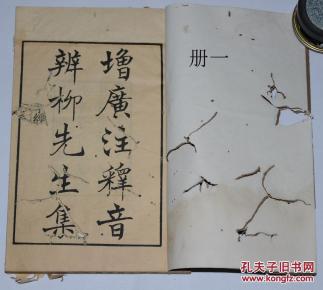 增廣注釋音
辨柳先生集
一册
孔夫子旧书网